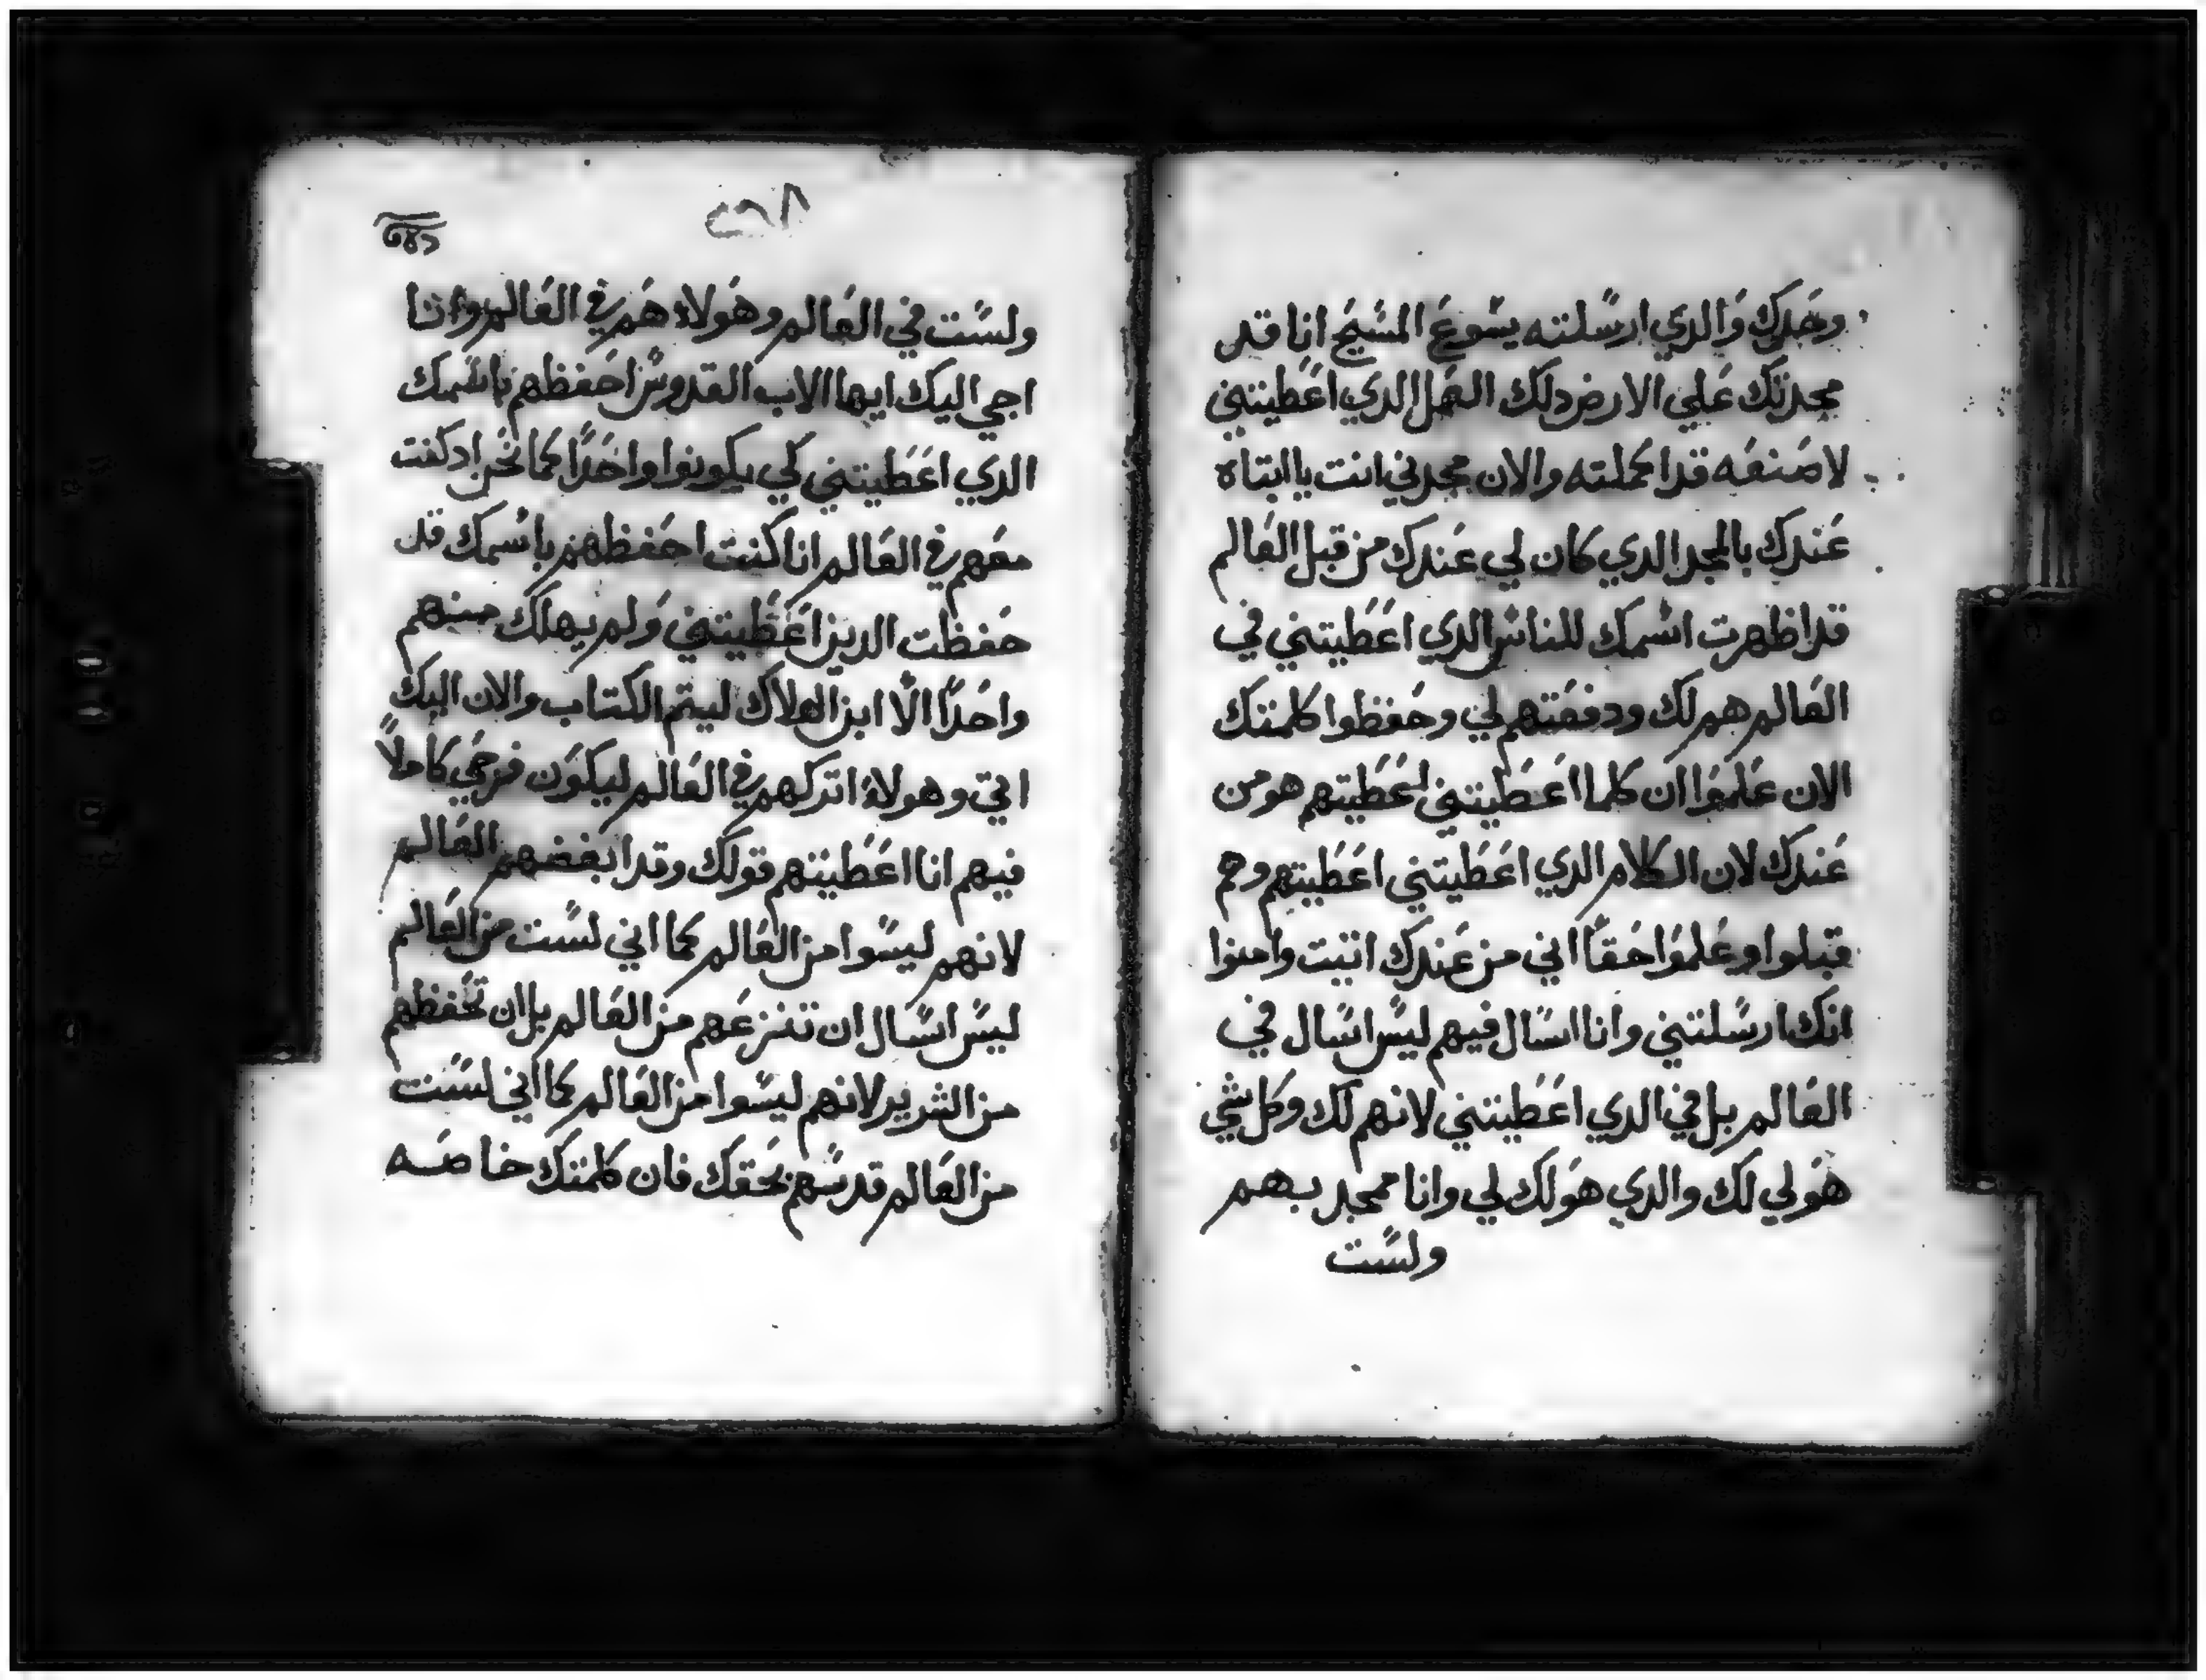 وحدك والدي ارسلته يسوع المسيح انا قد
مجدتك علي الارض دلك العمل الدي اعطيتني
لاصنعه قد اكملته والان مجدني انت يا ابتاه
عندك بالمجد الدي كان لي عندك من قبل العالم
قد اظهرت اسمك للناس الدي اعطيتني في
العالم هم لك ودفعتهم لي وحفظوا كلمتك
الان علموا ان كلما اعطيتني اعطيتهم هو من
عندك لان الكلام الدي اعطيتني اعطيتهم وهم
قبلوا وعلموا حقا اني من عندك اتيت وامنوا
انك ارسلتني وانا اسال فيهم ليس اسال في
العالم بل في الدي اعطيتني لانهم لك وكل شي
هو لي لك والدي هو لك لي وانا ممجد بهم
ولست
ولست في العالم وهولاء هم في العالم وانا
اجي اليك ايها الاب القدوس احفظهم باسمك
الدي اعطيتني لكي يكونوا واحدا كما نحن اد كنت
معهم في العالم انا كنت احفظهم باسمك قد
حفظت الدين اعطيتني ولم يهلك منهم
واحدا الا ابن الهلاك ليتم الكتاب والان اليك
اتي وهولاء اتركهم في العالم ليكون فرحي كاملا
فيهم انا اعطيتهم قولك وقد ابغضهم العالم
لانهم ليسوا من العالم كما اني لست من العالم
ليس اسال ان تنزعهم من العالم بل ان تحفظهم
من الشرير لانهم ليسوا من العالم كما اني لست
من العالم قدسهم بحقك فان كلمتك خاصه